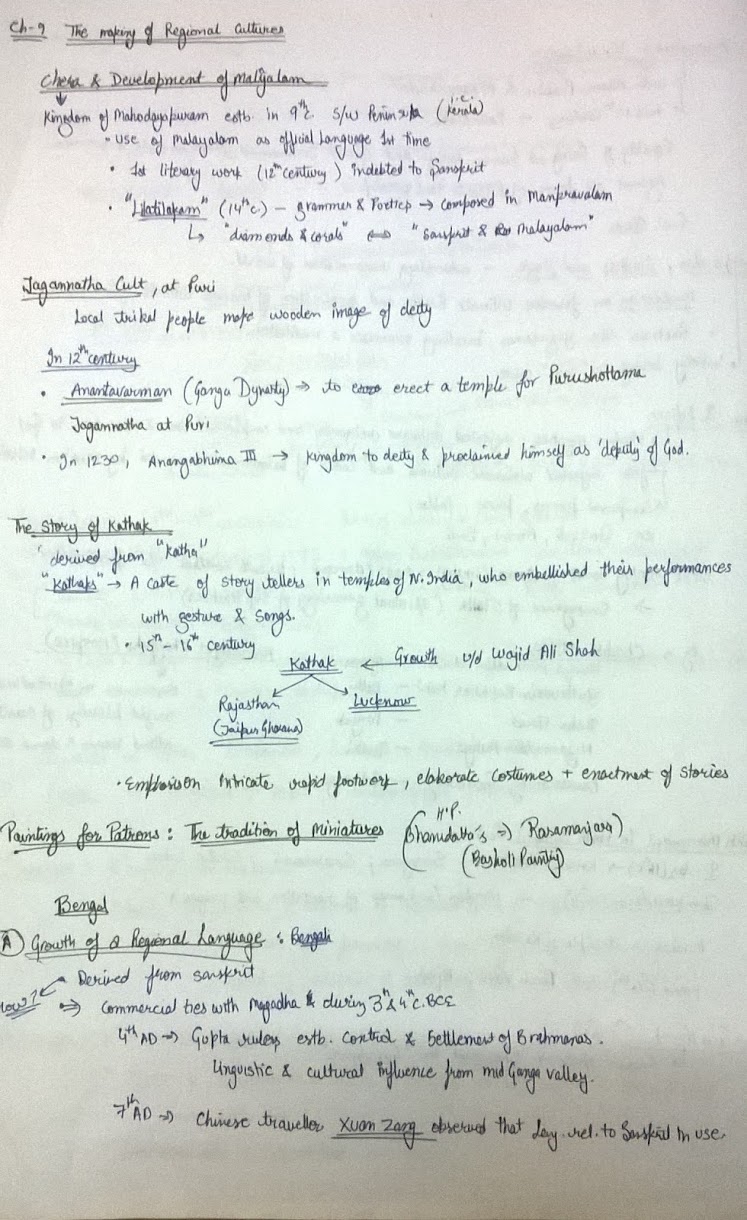 Ch-9 The making of Regional Cultures
Chera & Development of Malyalam
Kingdom of Mahodayapuram estb. in 9th c. S/W Peninsula (i.e. Kerala)
• use of Malayalam as official Language 1st time
• 1st literary work (12th century) indebted to Sanskrit
• "Lilatilakam" (14th c.) - grammer & Poetics → composed in Manipravalam
↳ "diamonds & corals" ⇔ "Sanskrit & Malayalam"
Jagannatha Cult, at Puri
Local tribal people make wooden image of deity
In 12th century
• Anantavarman (Ganga Dynasty) → to erect a temple for Purushottama
Jagannatha at Puri
• In 1230, Anangabhima III → Kingdom to deity & proclaimed himself as 'deputy' of God.
The Story of Kathak
derived from "Katha"
"Kathaks" → A caste of story tellers in temples of N. India, who embellished their performances
with gesture & songs.
• 15th - 16th century
Kathak ← Growth u/d Wajid Ali Shah
Rajasthan Lucknow
(Jaipur Gharana)
• Emphasis on intricate rapid footwork, elaborate costumes + enactment of stories
Paintings for Patrons: The tradition of miniatures (Bhanudatta's ⇒ Rasamanjari)
H.P.
(Basholi Painting)
Bengal
(A) Growth of a Regional Language: Bengali
Derived from sanskrit
How? ⇒ Commercial ties with Magadha during 3rd & 4th c. BCE
4th AD ⇒ Gupta rulers estb. control & Settlement of Brahmanas.
linguistic & cultural influence from mid Ganga valley.
7th AD ⇒ Chinese traveller Xuan Zang observed that lang. rel. to Sanskrit in use.